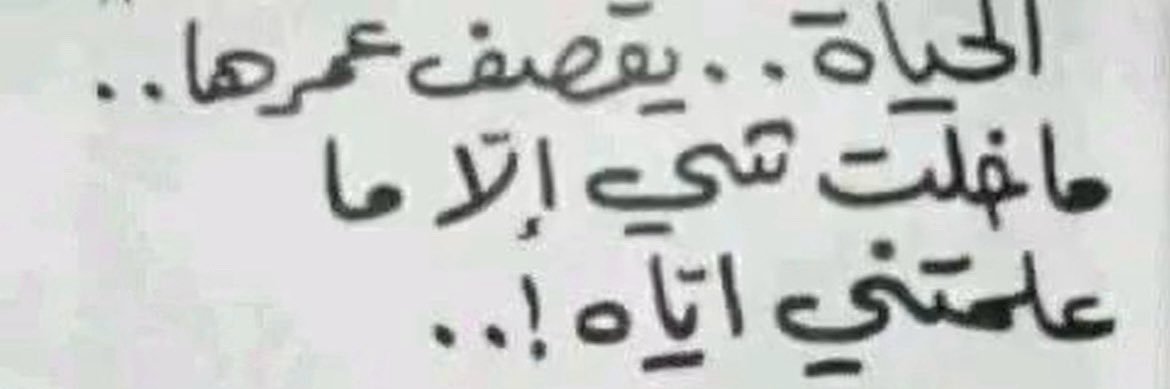 الحياة.. يقصف عمرها..
ما خلت شي إلّا ما
علمتني ايّاه!..